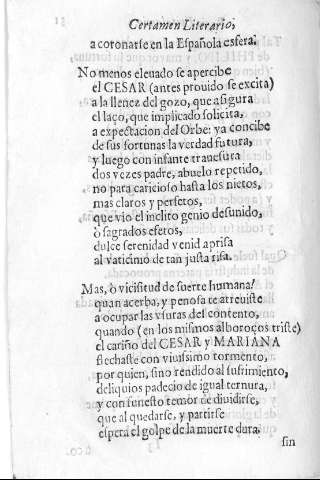 Certamen Literario,
a coronarse en la Española esfera.
No menos eleuado se apercibe
el CESAR (antes prouido se excita)
a la llenez del gozo, que asigura
el laço, que implicado solicita,
a expectacion del Orbe: ya concibe
de sus fortunas la verdad futura,
y luego con infante trauesura
dos vezes padre, abuelo repetido,
no para caricioso hasta los nietos,
mas claros y perfetos,
que vio el inclito genio desunido,
ò sagrados efetos,
dulce serenidad venid aprisa
al vaticinio de tan justa risa.
Mas, ò vicisitud de suerte humana?
quan acerba, y penosa te atreuiste
a ocupar las vsuras del contento,
quando (en los mismos alboroços triste)
el cariño del CESAR y MARIANA
flechaste con viuissimo tormento,
por quien, sino rendido al sufrimiento,
deliquios padecio de igual ternura,
y con funesto temor de diuidirse,
que al quedarse, y partirse
espera el golpe de la muerte dura.
sin